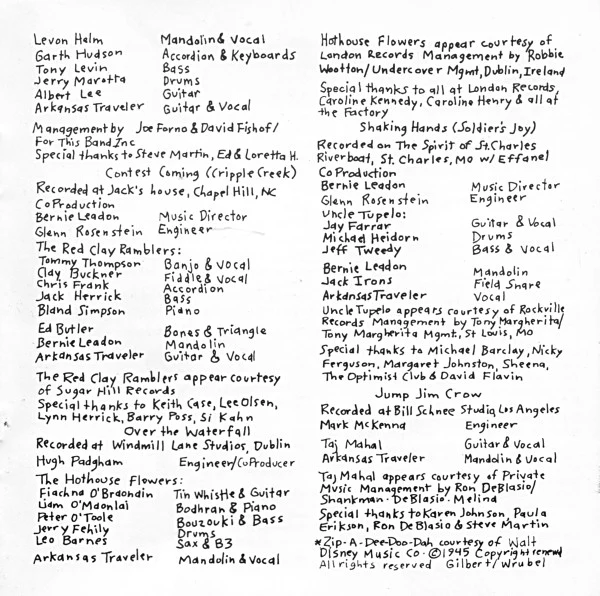 Levon Halm Mandolin & Vocal
Garth Hudson Accordion & Keyboards
Tony Levin Bass
Jerry Marotta Drums
Albert Lee Guitar
Arkansas Traveler Guitar & Vocal
Management by Joe Forno & David Fishof/
For This Band Inc
Special thanks to Steve Martin, Ed & Loretta H.
Contest Coming (Cripple Creek)
Recorded at Jack's house, Chapel Hill, NC
CoProduction
Bernie Leadon Music Director
Glenn Rosenstein Engineer
The Red Clay Ramblers:
Tommy Thompson Banjo & Vocal
Clay Buckner Fiddle & Vocal
Chris Frank Accordion
Jack Herrick Bass
Bland Simpson Piano
Ed Butler Bones & Triangle
Bernie Leadon Mandolin
Arkansas Traveler Guitar & Vocal
The Red Clay Ramblers appear courtesy
of Sugar Hill Records
Special thanks to Keith Case, Lee Olsen,
Lynn Herrick, Barry Poss, Si Kahn
Over the Waterfall
Recorded at Windmill Lane Studios, Dublin
Hugh Padgham Engineer/CoProducer
The Hothouse Flowers:
Fiachna O'Braonain Tin Whistle & Guitar
Liam O'Maonlai Bodhran & Piano
Peter O'Toole Bouzouki & Bass
Jerry Fehily Drums
Leo Barnes Sax & B3
Arkansas Traveler Mandolin & Vocal
Hothouse Flowers appear courtesy of
London Records Management by Robbie
Wootton/Undercover Mgmt, Dublin, Ireland
Special thanks to all at London Records,
Caroline Kennedy, Caroline Henry & all at
the Factory
Shaking Hands (Soldier's Joy)
Recorded on The Spirit of St. Charles
Riverboat, St. Charles, MO w/ Effanel
CoProduction
Bernie Leadon Music Director
Glenn Rosenstein Engineer
Uncle Tupelo:
Jay Farrar Guitar & Vocal
Michael Heidorn Drums
Jeff Tweedy Bass & Vocal
Bernie Leadon Mandolin
Jack Irons Field Snare
Arkansas Traveler Vocal
Uncle Tupelo appears courtesy of Rockville
Records Management by Tony Margherita/
Tony Margherita Mgmt, St Louis, MO
Special thanks to Michael Barclay, Nicky
Ferguson, Margaret Johnston, Sheena,
The Optimist Club & David Flavin
Jump Jim Crow
Recorded at Bill Schnee Studio, Los Angeles
Mark McKenna Engineer
Taj Mahal Guitar & Vocal
Arkansas Traveler Mandolin & Vocal
Taj Mahal appears courtesy of Private
Music Management by Ron DeBlasio/
Shankman · DeBlasio · Melina
Special thanks to Karen Johnson, Paula
Erikson, Ron DeBlasio & Steve Martin
*Zip-A-Dee-Doo-Dah courtesy of Walt
Disney Music Co. ©1945 Copyright renewd
All rights reserved Gilbert/Wrubel